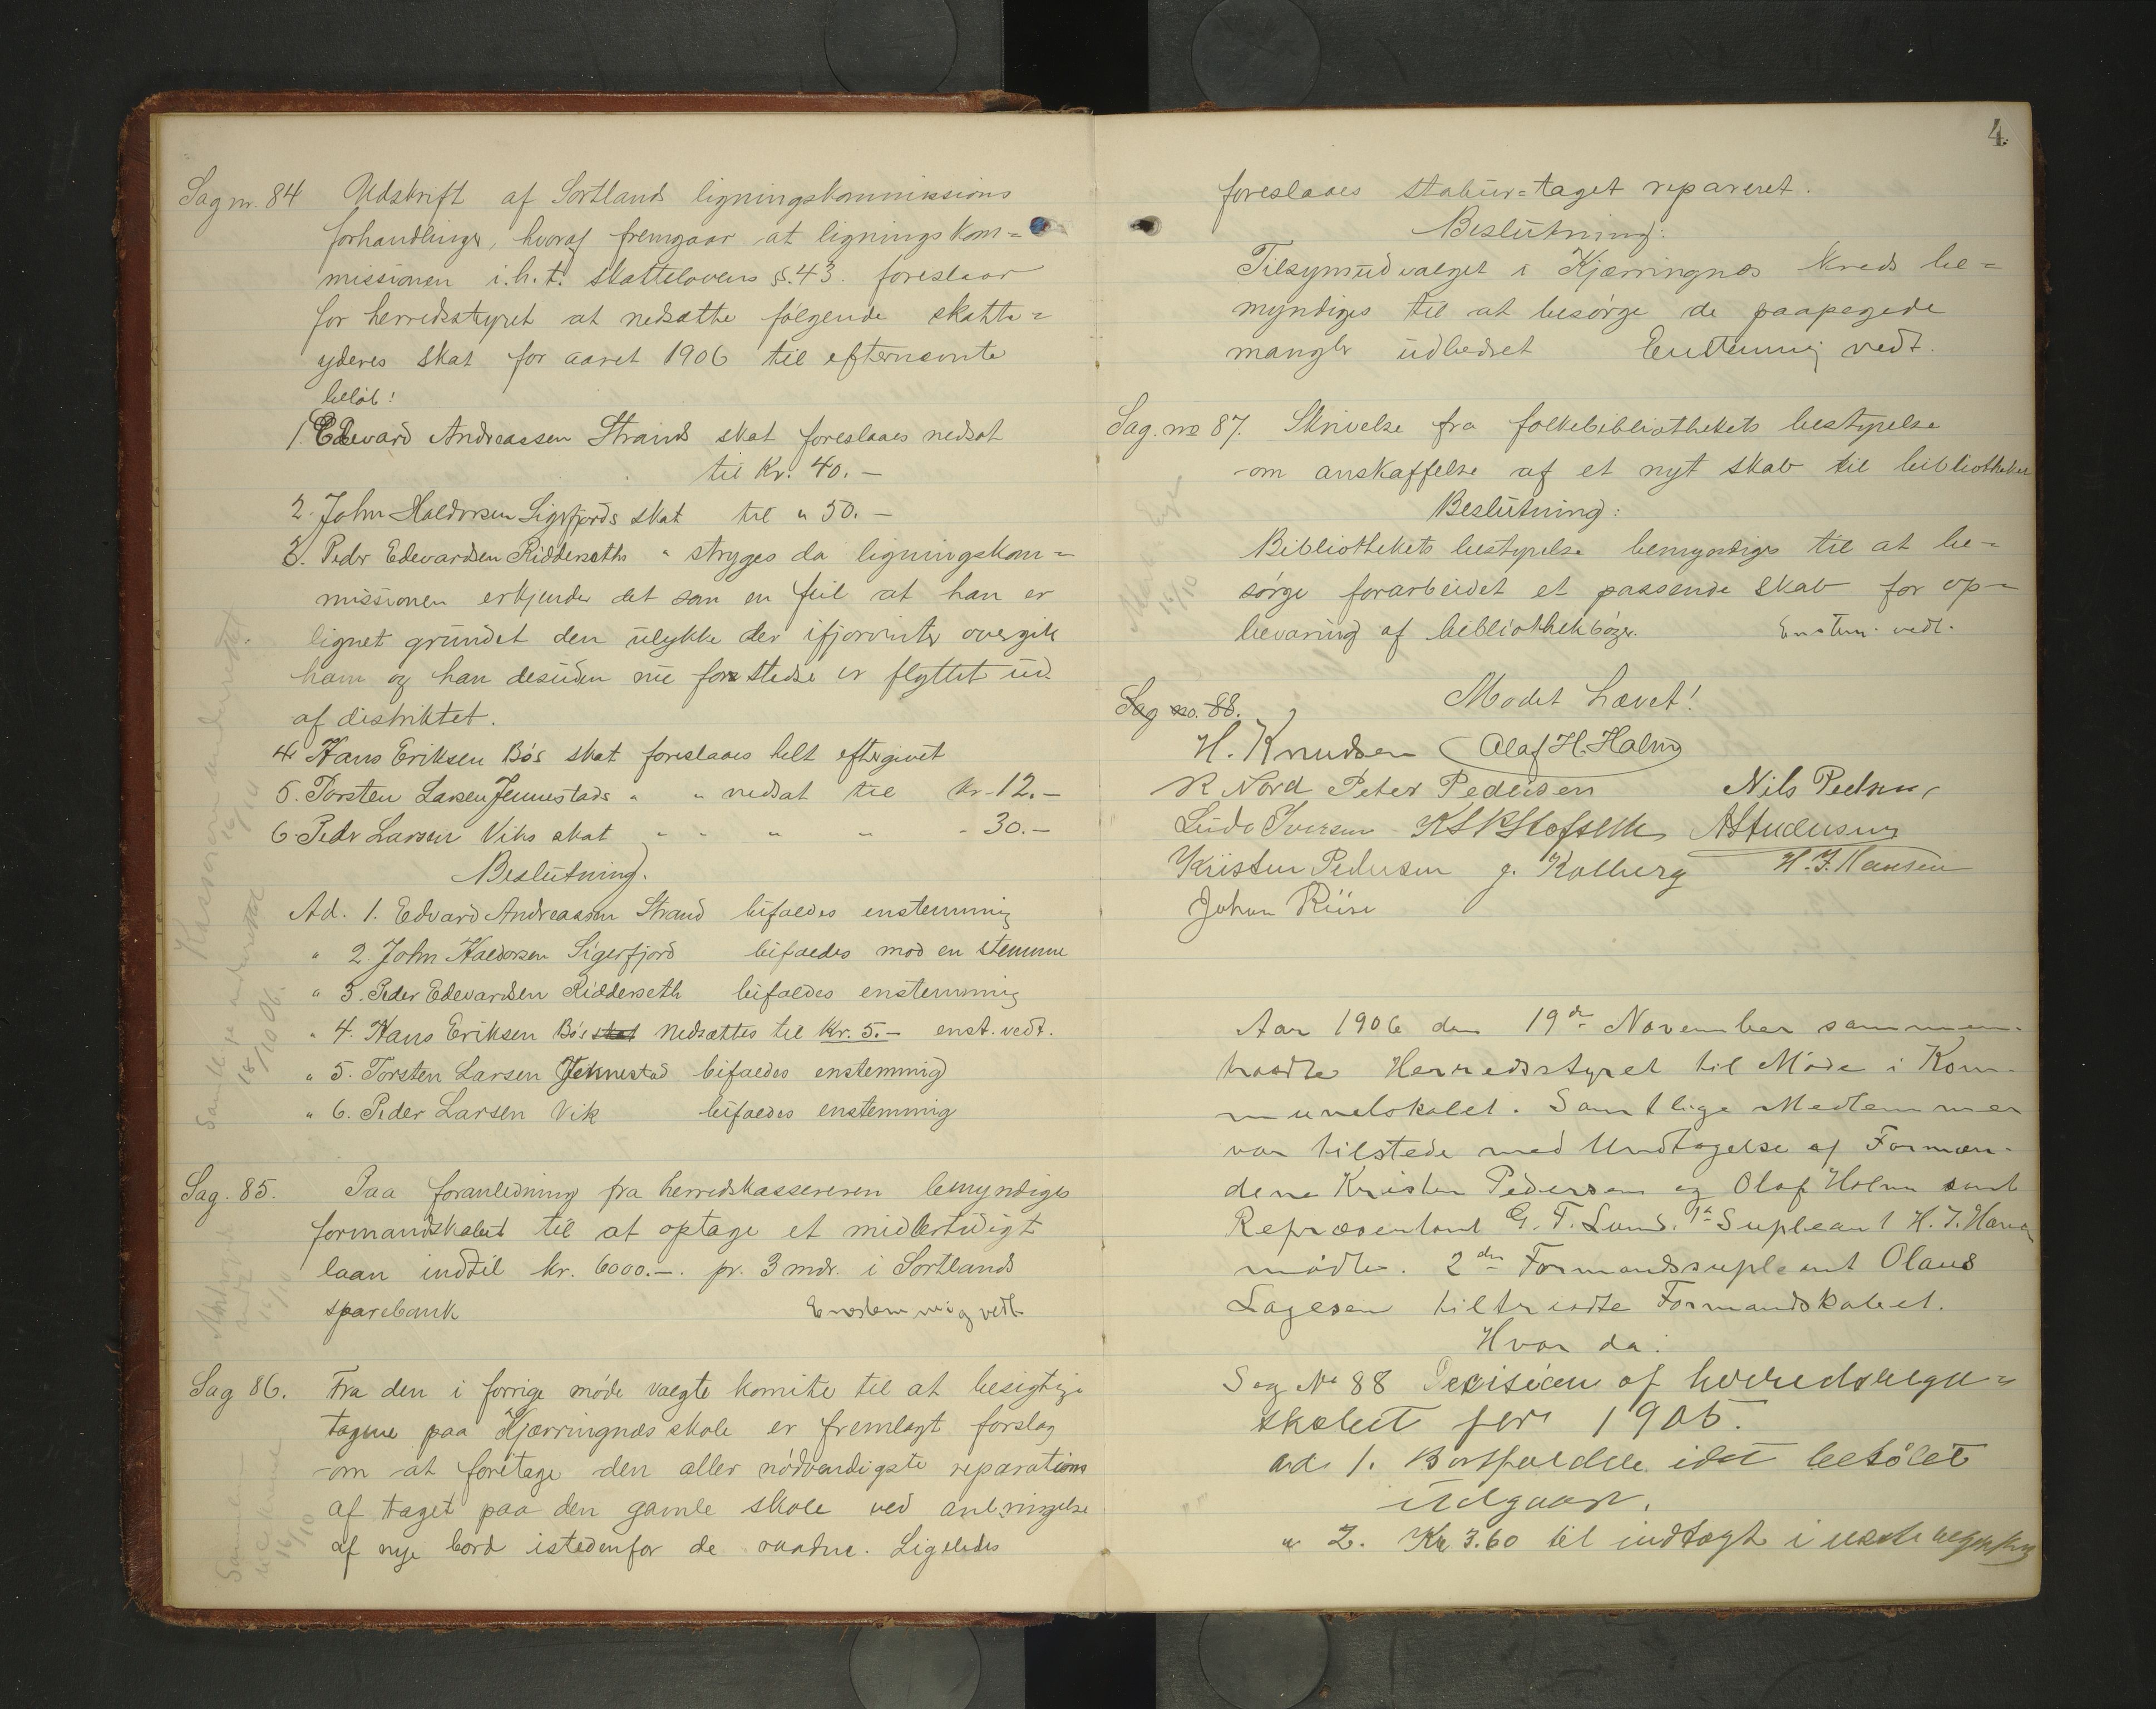 Sag nr. 84 Udskrift af Sortlands ligningskommissions
forhandlinger, hvoraf fremgaar at ligningskom=
missionen i.h.t. skattelovens §.43. foreslaar
for herredsstyret at nedsætte følgende skatte=
yderes skat for aaret 1906 til efternævnte
beløb!
1. Edevard Andreassen Strands skat foreslaaes nedsat
til Kr. 40.-
2. John Haldorsen Sigerfjords skat til " 50.-
3. Peder Edevardsen Ridderseths " stryges da ligningskom=
missionen erkjender det som en feil at han er
lignet grundet den ulykke der ifjorvinter overgik
ham og han desuden nu for stedse er flyttet ud
af distriktet.
4 Hans Eriksen Bøs skat foreslaaes helt eftergivet
5. Torsten Larsen Jennestads " " nedsat til Kr. 12.-
6. Peder Larsen Viks skat " " " " " 30.-
Beslutning.
Ad. 1. Edvard Andreassen Strand bifaldes enstemmig
" 2. John Haldorsen Sigerfjord bifaldes mod en stemme
" 3. Peder Edevardsen Ridderseth bifaldes enstemmig
" 4. Hans Eriksen Bøs skat nedsættes til Kr. 5.- enst. vedt.
" 5. Torsten Larsen Jennestad bifaldes enstemmig
" 6. Peder Larsen Vik bifaldes enstemmig
Sag. 85. Paa foranledning fra herredskassereren bemyndiges
formandskabet til at optage et midlertidigt
laan indtil kr. 6000.-. pr. 3 mdr. i Sortlands
sparebank Enstemmig vedt.
Sag 86. Fra den i forrige møde valgte komite til at besigtige
tagene paa Kjærringnes skole er fremlagt forslag
om at foretage den aller nødvendigste reparation
af taget paa den gamle skole ved anbringelse
af nye bord istedenfor de raadne. Ligeledes
Kassereren underrettet
16/10
18/10 06.
16/10
16/10
4.
foreslaaes stabur=taget repareret.
Beslutning:
Tilsynsudvalget i Kjærringnes kreds be=
myndiges til at besørge de paapegede
mangler udbedret Enstemmig vedt.
Sag. no 87. Skrivelse fra folkebibliothekets bestyrelse
om anskaffelse af et nyt skab til bibliotheket
Beslutning:
Bibliothekets bestyrelse bemyndiges til at be=
sørge forarbeidet et passende skab for op=
bevaring af bibliothekbøger. Enstem. vedt.
16/10
Sag no. 88. Mødet hævet!
H. Knudsen Olaf H. Holm
R Nord Peter Pedersen Nils Pedersen
Ludv Iversen
Kristen Pedersen J. Kolberg H. J. Hansen
Johan Riise
Aar 1906 den 19de November sammen-
traadte Herredsstyret til Møde i Kom-
munelokalet. Samtlige Medlemmer
var tilstede med Undtagelse af Formæn-
dene Kristen Pedersen og Olaf Holm samt
Repræsentant G. T. Lund. 1ste Supleant H. J. Hansen
mødte. 2den Formandssupleant Olaus
Lagesen tiltraadte Formandskabet.
Hvor da:
Sag No 88 Decision af herredsregn=
skabet for 1905.
ad 1. Bortfalder idet beløbet
udgaar.
" 2. Kr 3.60 til indtægt i næste regnskab